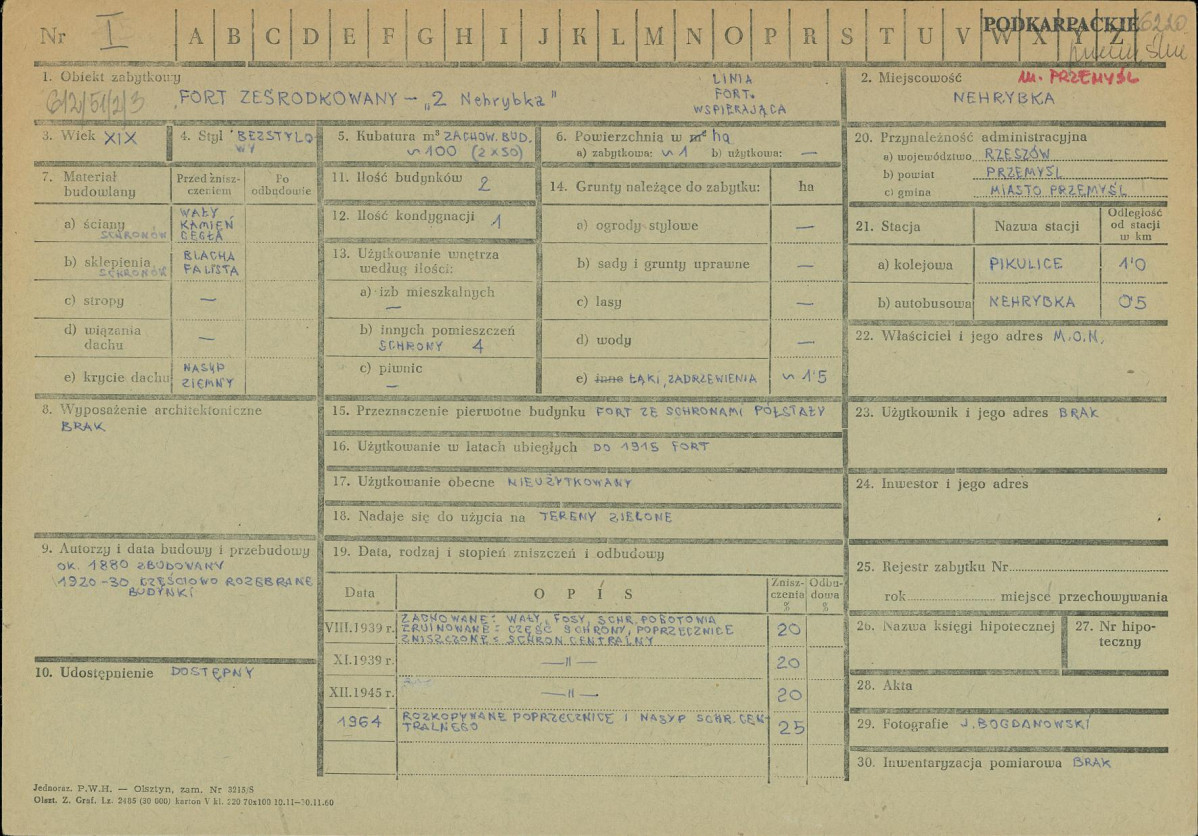 Nr I A B C D E F G H I J K L M N O P R S T U V W X Y Z
PODKARPACKIE
6220
1. Obiekt zabytkowy
612/51/2/3
FORT ZEŚRODKOWANY – „2 Nehrybka"
LINIA
FORT.
WSPIERAJĄCA
2. Miejscowość m. PRZEMYŚL
NEHRYBKA
3. Wiek XIX
4. Styl BEZSTYLO
WY
5. Kubatura m³ ZACHOW. BUD.
~100 (2×50)
6. Powierzchnia w m² ha
a) zabytkowa: ~1 b) użytkowa: —
7. Materiał
budowlany
Przed znisz-
czeniem
Po
odbudowie
a) ściany
SCHRONÓW
WAŁY
KAMIEŃ
CEGŁA
b) sklepienia
SCHRONÓW
BLACHA
FALISTA
c) stropy —
d) wiązania
dachu —
e) krycie dachu
NASYP
ZIEMNY
8. Wyposażenie architektoniczne
BRAK
9. Autorzy i data budowy i przebudowy
OK. 1880 ZBUDOWANY
1920-30 CZĘŚCIOWO ROZEBRANE
BUDYNKI
10. Udostępnienie DOSTĘPNY
11. Ilość budynków 2
12. Ilość kondygnacji 1
13. Użytkowanie wnętrza
według ilości:
a) izb mieszkalnych
—
b) innych pomieszczeń
SCHRONY 4
c) piwnic
—
14. Grunty należące do zabytku: ha
a) ogrody stylowe —
b) sady i grunty uprawne —
c) lasy —
d) wody —
e) inne ŁĄKI, ZADRZEWIENIA ~1'5
15. Przeznaczenie pierwotne budynku FORT ZE SCHRONAMI PÓŁSTAŁY
16. Użytkowanie w latach ubiegłych DO 1915 FORT
17. Użytkowanie obecne NIEUŻYTKOWANY
18. Nadaje się do użycia na TERENY ZIELONE
19. Data, rodzaj i stopień zniszczeń i odbudowy
Data
O P I S
Znisz-
czenia
%
Odbu-
dowa
%
VIII.1939 r.
ZACHOWANE: WAŁY, FOSY, SCHR. POGOTOWIA
ZRUINOWANE: CZĘŚĆ SCHRONY, POPRZECZNICE
ZNISZCZONE: SCHRON CENTRALNY
20
XI.1939 r. —"— 20
XII.1945 r. —"— 20
1964
ROZKOPYWANE POPRZECZNICE I NASYP SCHR. CEN-
TRALNEGO
25
20. Przynależność administracyjna
a) województwo RZESZÓW
b) powiat PRZEMYŚL
c) gmina MIASTO PRZEMYŚL
21. Stacja
Nazwa stacji
Odległość
od stacji
w km
a) kolejowa PIKULICE 1'0
b) autobusowa NEHRYBKA 0'5
22. Właściciel i jego adres M.O.N.
23. Użytkownik i jego adres BRAK
24. Inwestor i jego adres
25. Rejestr zabytku Nr
rok miejsce przechowywania
26. Nazwa księgi hipotecznej
27. Nr hipo-
teczny
28. Akta
29. Fotografie J. BOGDANOWSKI
30. Inwentaryzacja pomiarowa BRAK
Jednoraz. P.W.H. — Olsztyn, zam. Nr 3215/S
Olszt. Z. Graf. Lz. 2485 (30 000) karton V kl. 220 70x100 10.11—30.11.60